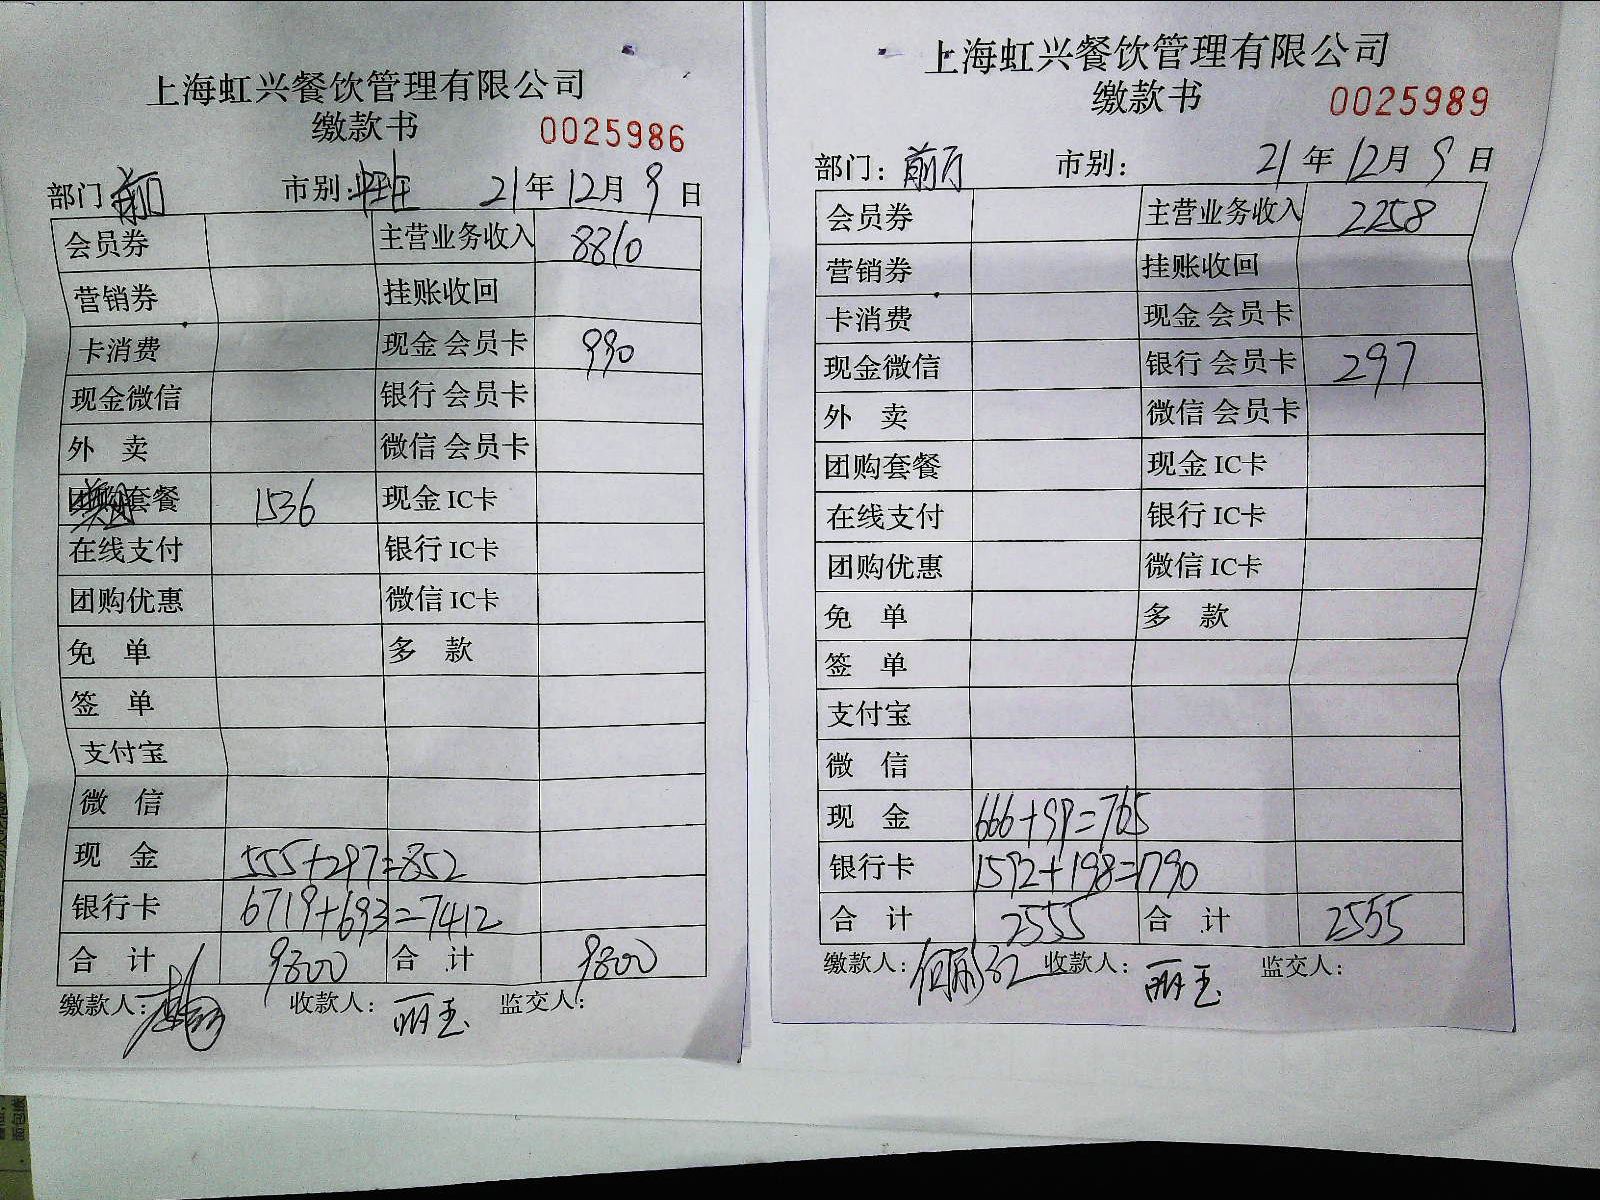 上海虹兴餐饮管理有限公司
缴款书 0025986
部门: 前 市别: 中班 21年12月9日
会员券 主营业务收入 8810
营销券 挂账收回
卡消费 现金 会员卡 990
现金微信 银行 会员卡
外 卖 微信 会员卡
团购套餐 1536 现金 IC卡
在线支付 银行 IC卡
团购优惠 微信 IC卡
免 单 多 款
签 单
支付宝
微 信
现 金 555+297=852
银行卡 6719+693=7412
合 计 9800 合 计 9800
缴款人: 收款人: 丽玉 监交人:
上海虹兴餐饮管理有限公司
缴款书 0025989
部门: 前厅 市别: 21年12月9日
会员券 主营业务收入 2258
营销券 挂账收回
卡消费 现金 会员卡
现金微信 银行 会员卡 297
外 卖 微信 会员卡
团购套餐 现金 IC卡
在线支付 银行 IC卡
团购优惠 微信 IC卡
免 单 多 款
签 单
支付宝
微 信
现 金 666+99=765
银行卡 1592+198=1790
合 计 2555 合 计 2555
缴款人: 收款人: 丽玉 监交人: